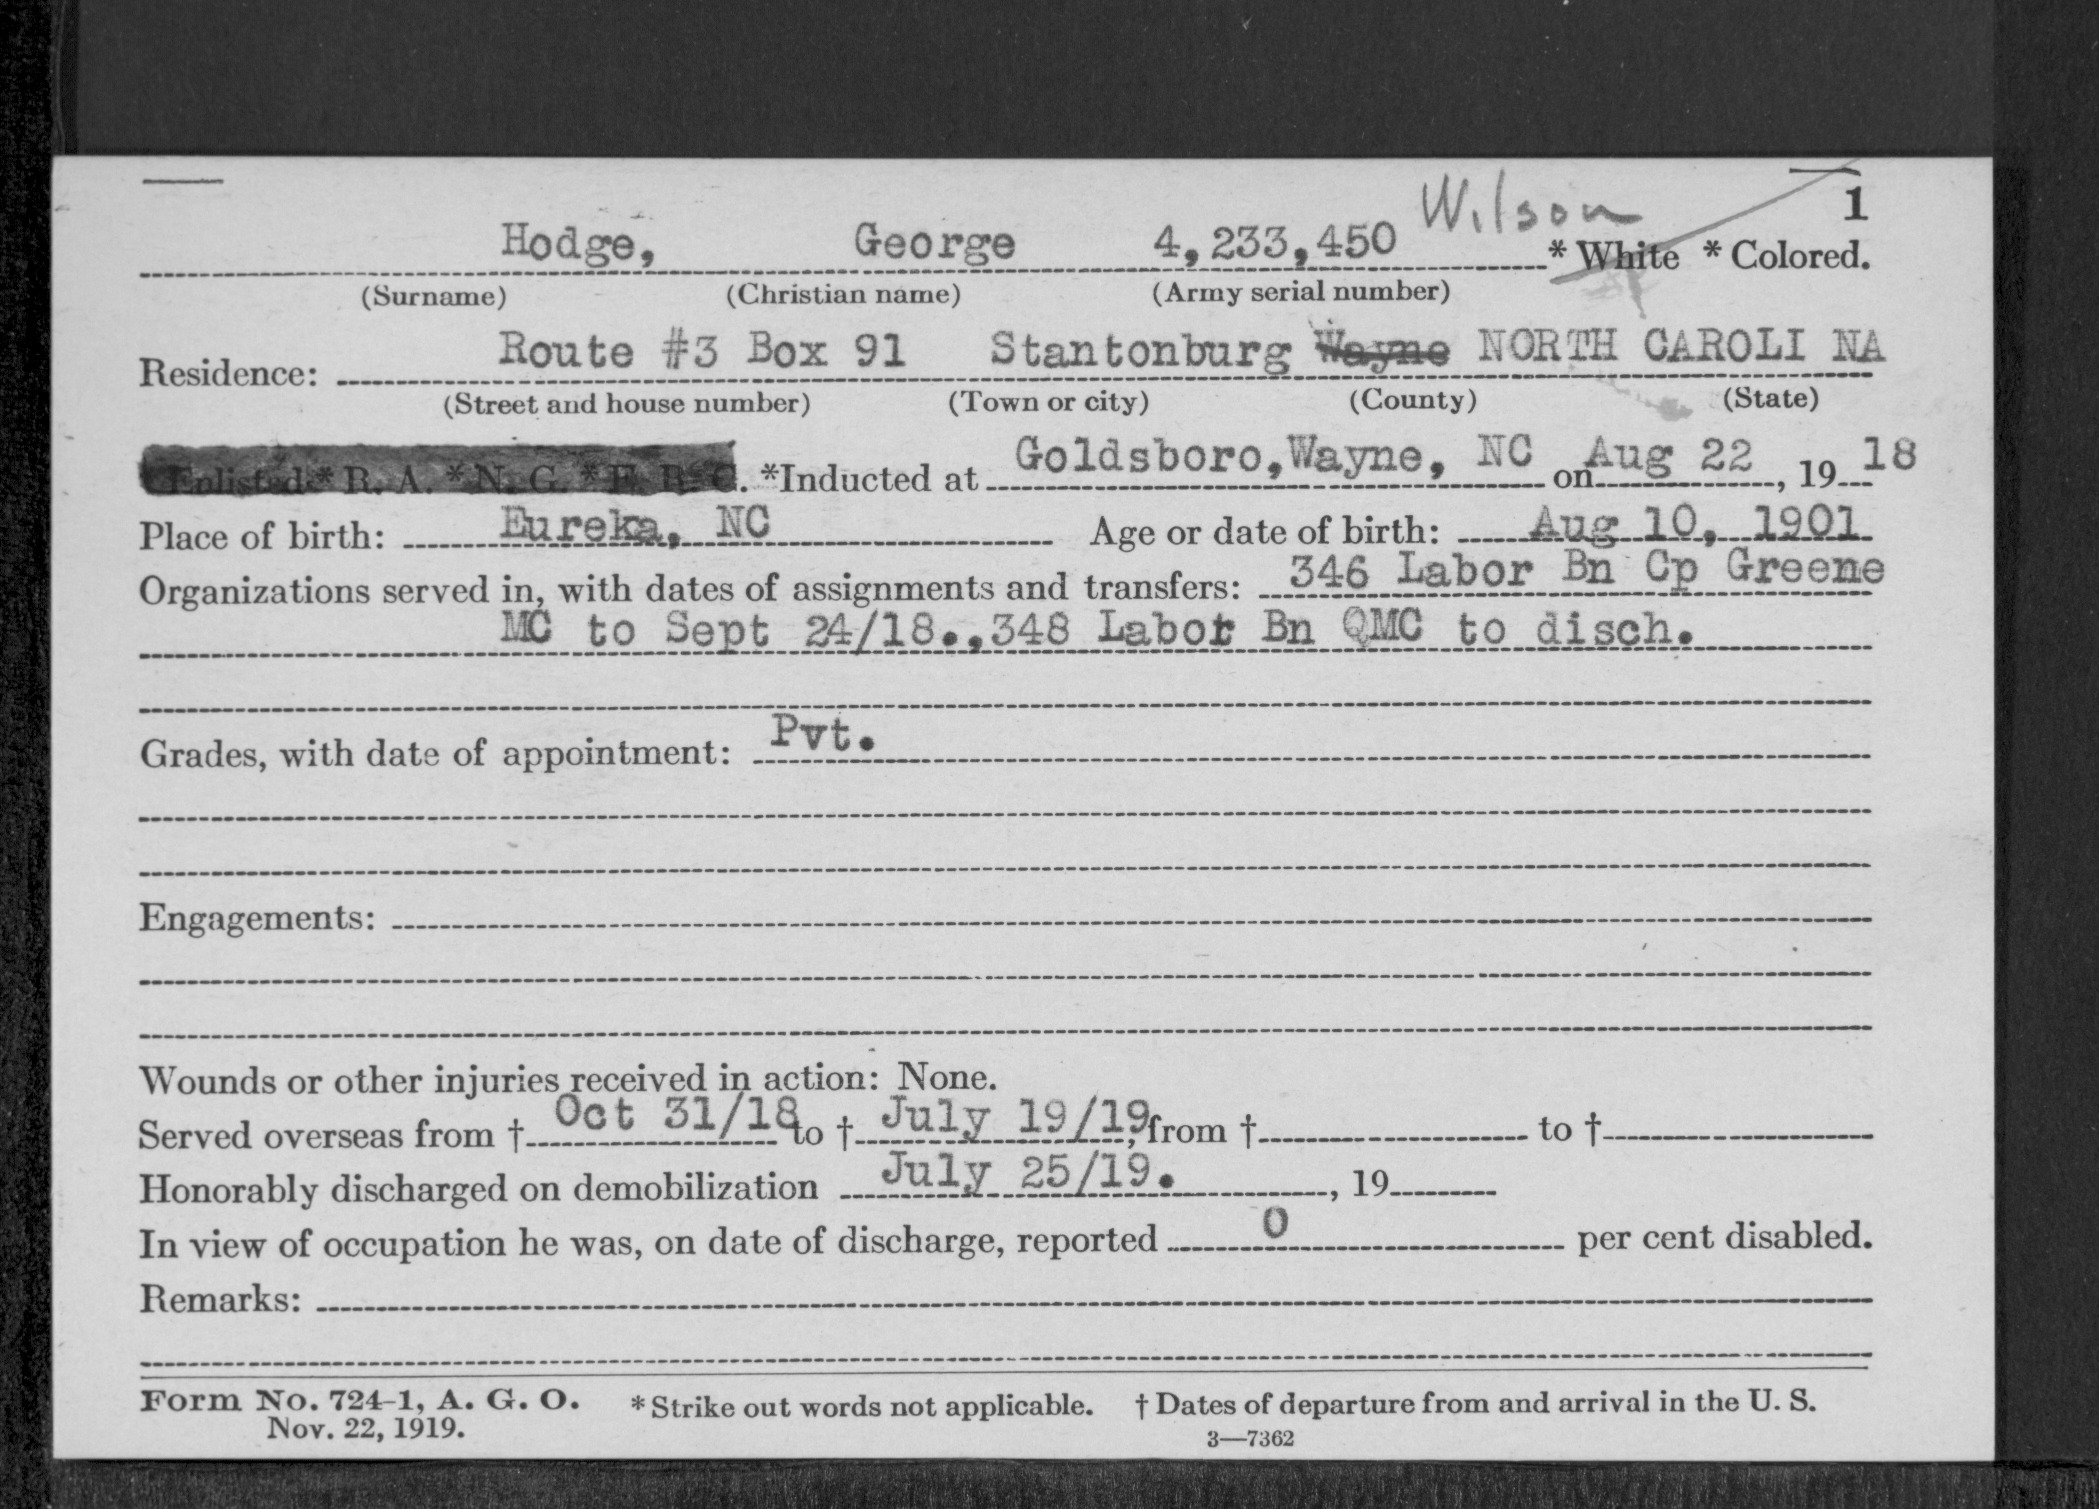 Wilson 1
Hodge, George 4,233,450 * White * Colored.
(Surname) (Christian name) (Army serial number)
Residence: Route #3 Box 91 Stantonburg Wayne NORTH CAROLI NA
(Street and house number) (Town or city) (County) (State)
Enlisted * R. A. * N. G. * E. R. C. *Inducted at Goldsboro, Wayne, NC on Aug 22, 19 18
Place of birth: Eureka, NC Age or date of birth: Aug 10, 1901
Organizations served in, with dates of assignments and transfers: 346 Labor Bn Cp Greene
MC to Sept 24/18.,348 Labor Bn QMC to disch.
Grades, with date of appointment: Pvt.
Engagements:
Wounds or other injuries received in action: None.
Served overseas from † Oct 31/18 to † July 19/19, from † to †
Honorably discharged on demobilization July 25/19. , 19
In view of occupation he was, on date of discharge, reported 0 per cent disabled.
Remarks:
Form No. 724-1, A. G. O. * Strike out words not applicable. † Dates of departure from and arrival in the U. S.
Nov. 22, 1919. 3—7362